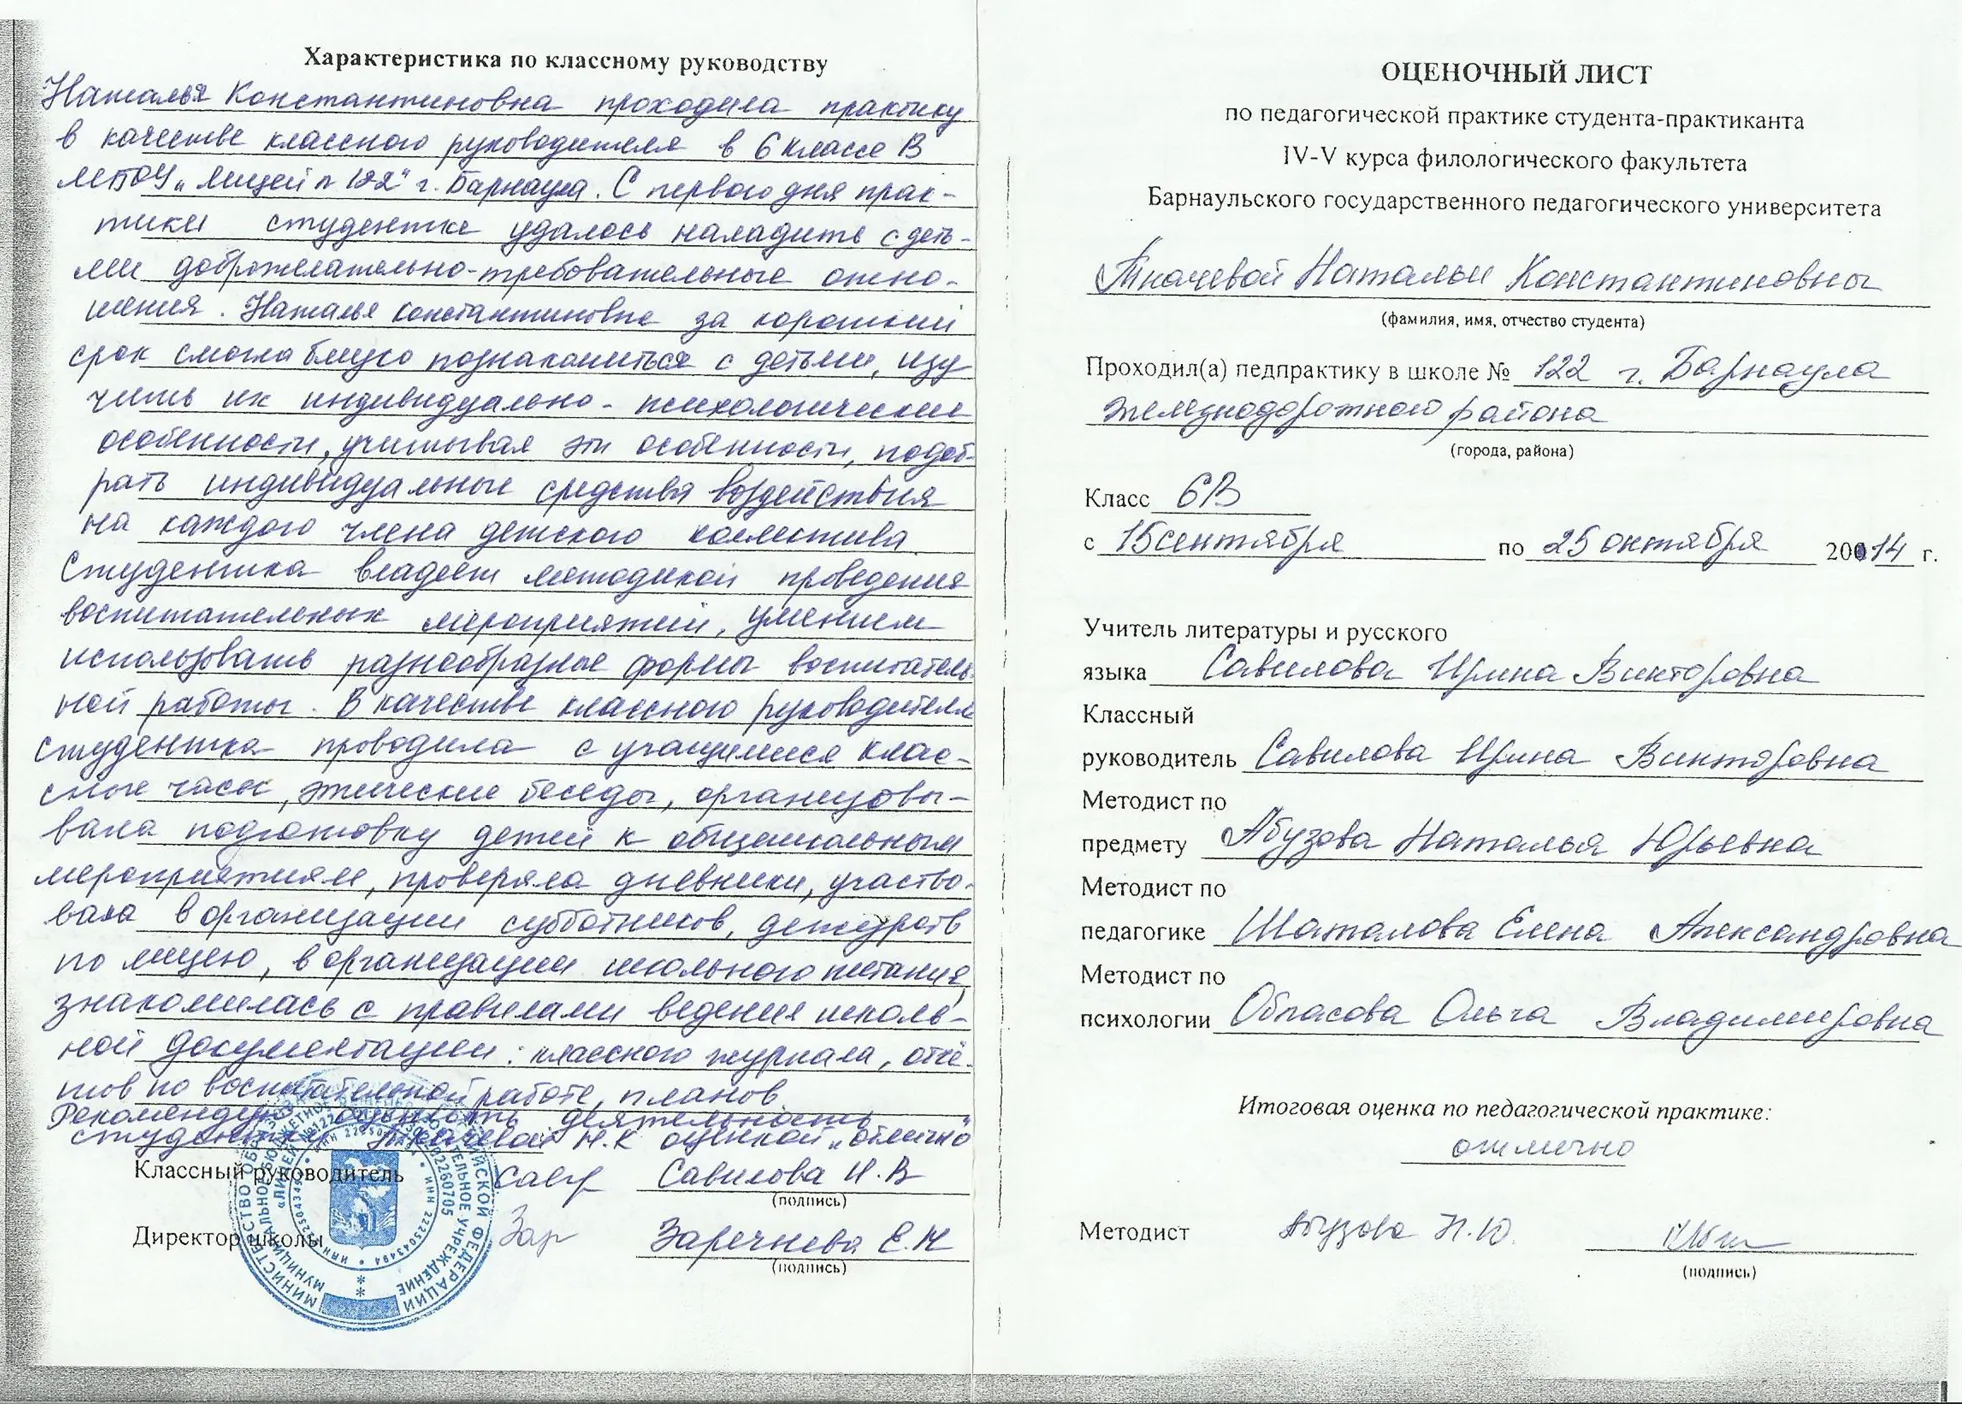 Характеристика по классному руководству
Наталья Константиновна проходила практику
в качестве классного руководителя в 6 классе В
МБОУ „Лицей № 122" г. Барнаула. С первого дня прак-
тики студентке удалось наладить с деть-
ми доброжелательно-требовательные отно-
шения. Наталья Константиновна за короткий
срок смогла близко познакомиться с детьми, изу
чить их индивидуально-психологические
особенности, учитывая эти особенности, подоб-
рать индивидуальные средства воздействия
на каждого члена детского коллектива.
Студентка владеет методикой проведения
воспитательных мероприятий, умением
использовать разнообразные формы воспитатель-
ной работы. В качестве классного руководителя
студентка проводила с учащимися клас-
сные часы, этические беседы, организовы-
вала подготовку детей к общешкольным
мероприятиям, проверяла дневники, участво-
вала в организации субботников, дежурств
по лицею, в организации школьного питания,
знакомилась с правилами ведения школь-
ной документации: классного журнала, отчё-
тов по воспитательной работе, планов
Рекомендую оценить деятельность
студентки Ткачевой Н.К оценкой „отлично"
Классный руководитель Савилова И.В
(подпись)
Директор школы Зар Заречнева Е.Н
(подпись)
МИНИСТЕРСТВО ОБРАЗОВАНИЯ РОССИЙСКОЙ ФЕДЕРАЦИИ
МУНИЦИПАЛЬНОЕ БЮДЖЕТНОЕ УЧРЕЖДЕНИЕ
«ЛИЦЕЙ №122»
ОЦЕНОЧНЫЙ ЛИСТ
по педагогической практике студента-практиканта
IV-V курса филологического факультета
Барнаульского государственного педагогического университета
Ткачевой Натальи Константиновны
(фамилия, имя, отчество студента)
Проходил(а) педпрактику в школе № 122 г. Барнаула
Железнодорожного района
(города, района)
Класс 6В
с 15 сентября по 25 октября 2014 г.
Учитель литературы и русского
языка Савилова Ирина Викторовна
Классный
руководитель Савилова Ирина Викторовна
Методист по
предмету Абузова Наталья Юрьевна
Методист по
педагогике Шаталова Елена Александровна
Методист по
психологии Обласова Ольга Владимировна
Итоговая оценка по педагогической практике:
отлично
Методист Абузова Н.Ю.
(подпись)